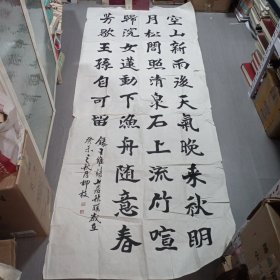 空山新雨後天氣晚来秋明
月松間照清泉石上流竹喧
歸浣女蓮動下漁舟随意春
芳歇王孫自可留
録王維詩山居秋暝
癸未 秋月柳枝